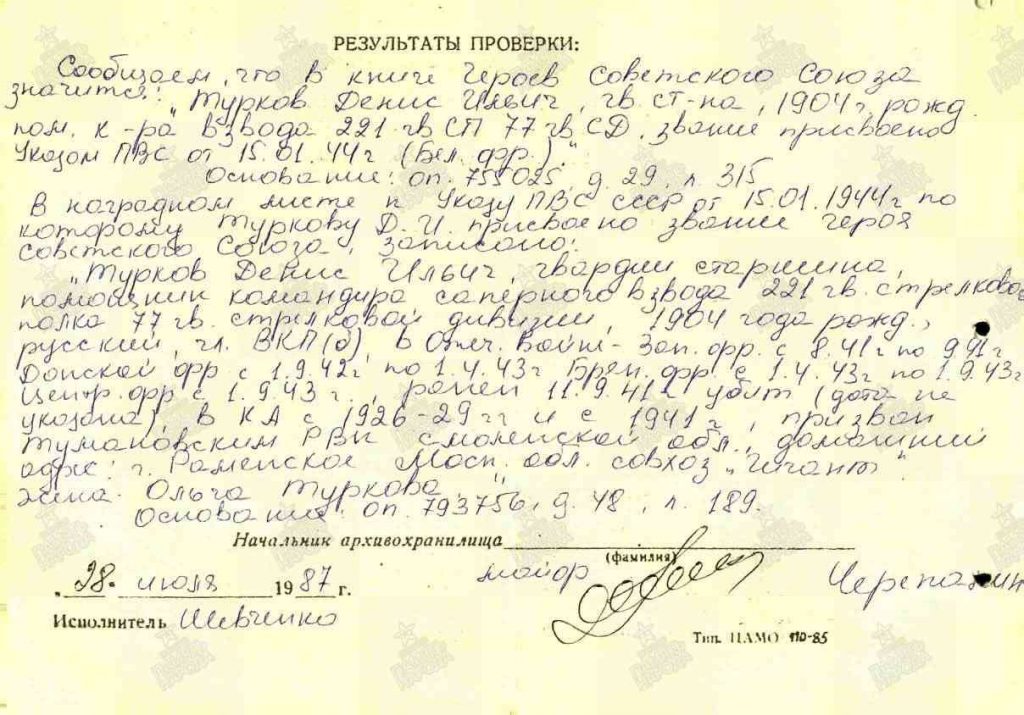 РЕЗУЛЬТАТЫ ПРОВЕРКИ:
Сообщаем, что в книге Героев Советского Союза
значится: "Турков Денис Ильич, гв. ст-на, 1904 г. рожд.
пом. к-ра взвода 221 гв СП 77 гв. СД, звание присвоено
Указом ПВС от 15.01.44г (Бел. фр.)."
Основание: оп. 755025, д. 29, л. 315
В наградном листе к Указу ПВС СССР от 15.01.1944г по
которому Туркову Д. И. присвоено звание героя
Советского Союза, записано:
"Турков Денис Ильич, гвардии старшина,
помощник командира саперного взвода 221 гв. стрелково
полка 77 гв. стрелковой дивизии, 1904 года рожд.,
русский, чл. ВКП(б), в Отеч. войне - Зап. фр. с 8.41г по 9.41г
Донской фр с 1.9.42г по 1.4.43г Брян. фр. с 1.4.43г по 1.9.43г
Центр. фр с 1.9.43 г., ранен 11.9.41г, убит (дата не
указана), в КА с 1926-29 гг и с 1941 г., призван
Тумановским РВК Смоленской обл., домашний
адрес: г. Раменское Моск. обл. совхоз "Гигант"
жена - Ольга Туркова."
Основание: оп. 793756, д. 48, л. 189.
Начальник архивохранилища
(фамилия)
майор Черепахин
"28" июля 1987 г.
Исполнитель Шевченко
Тип. ЦАМО 110-85